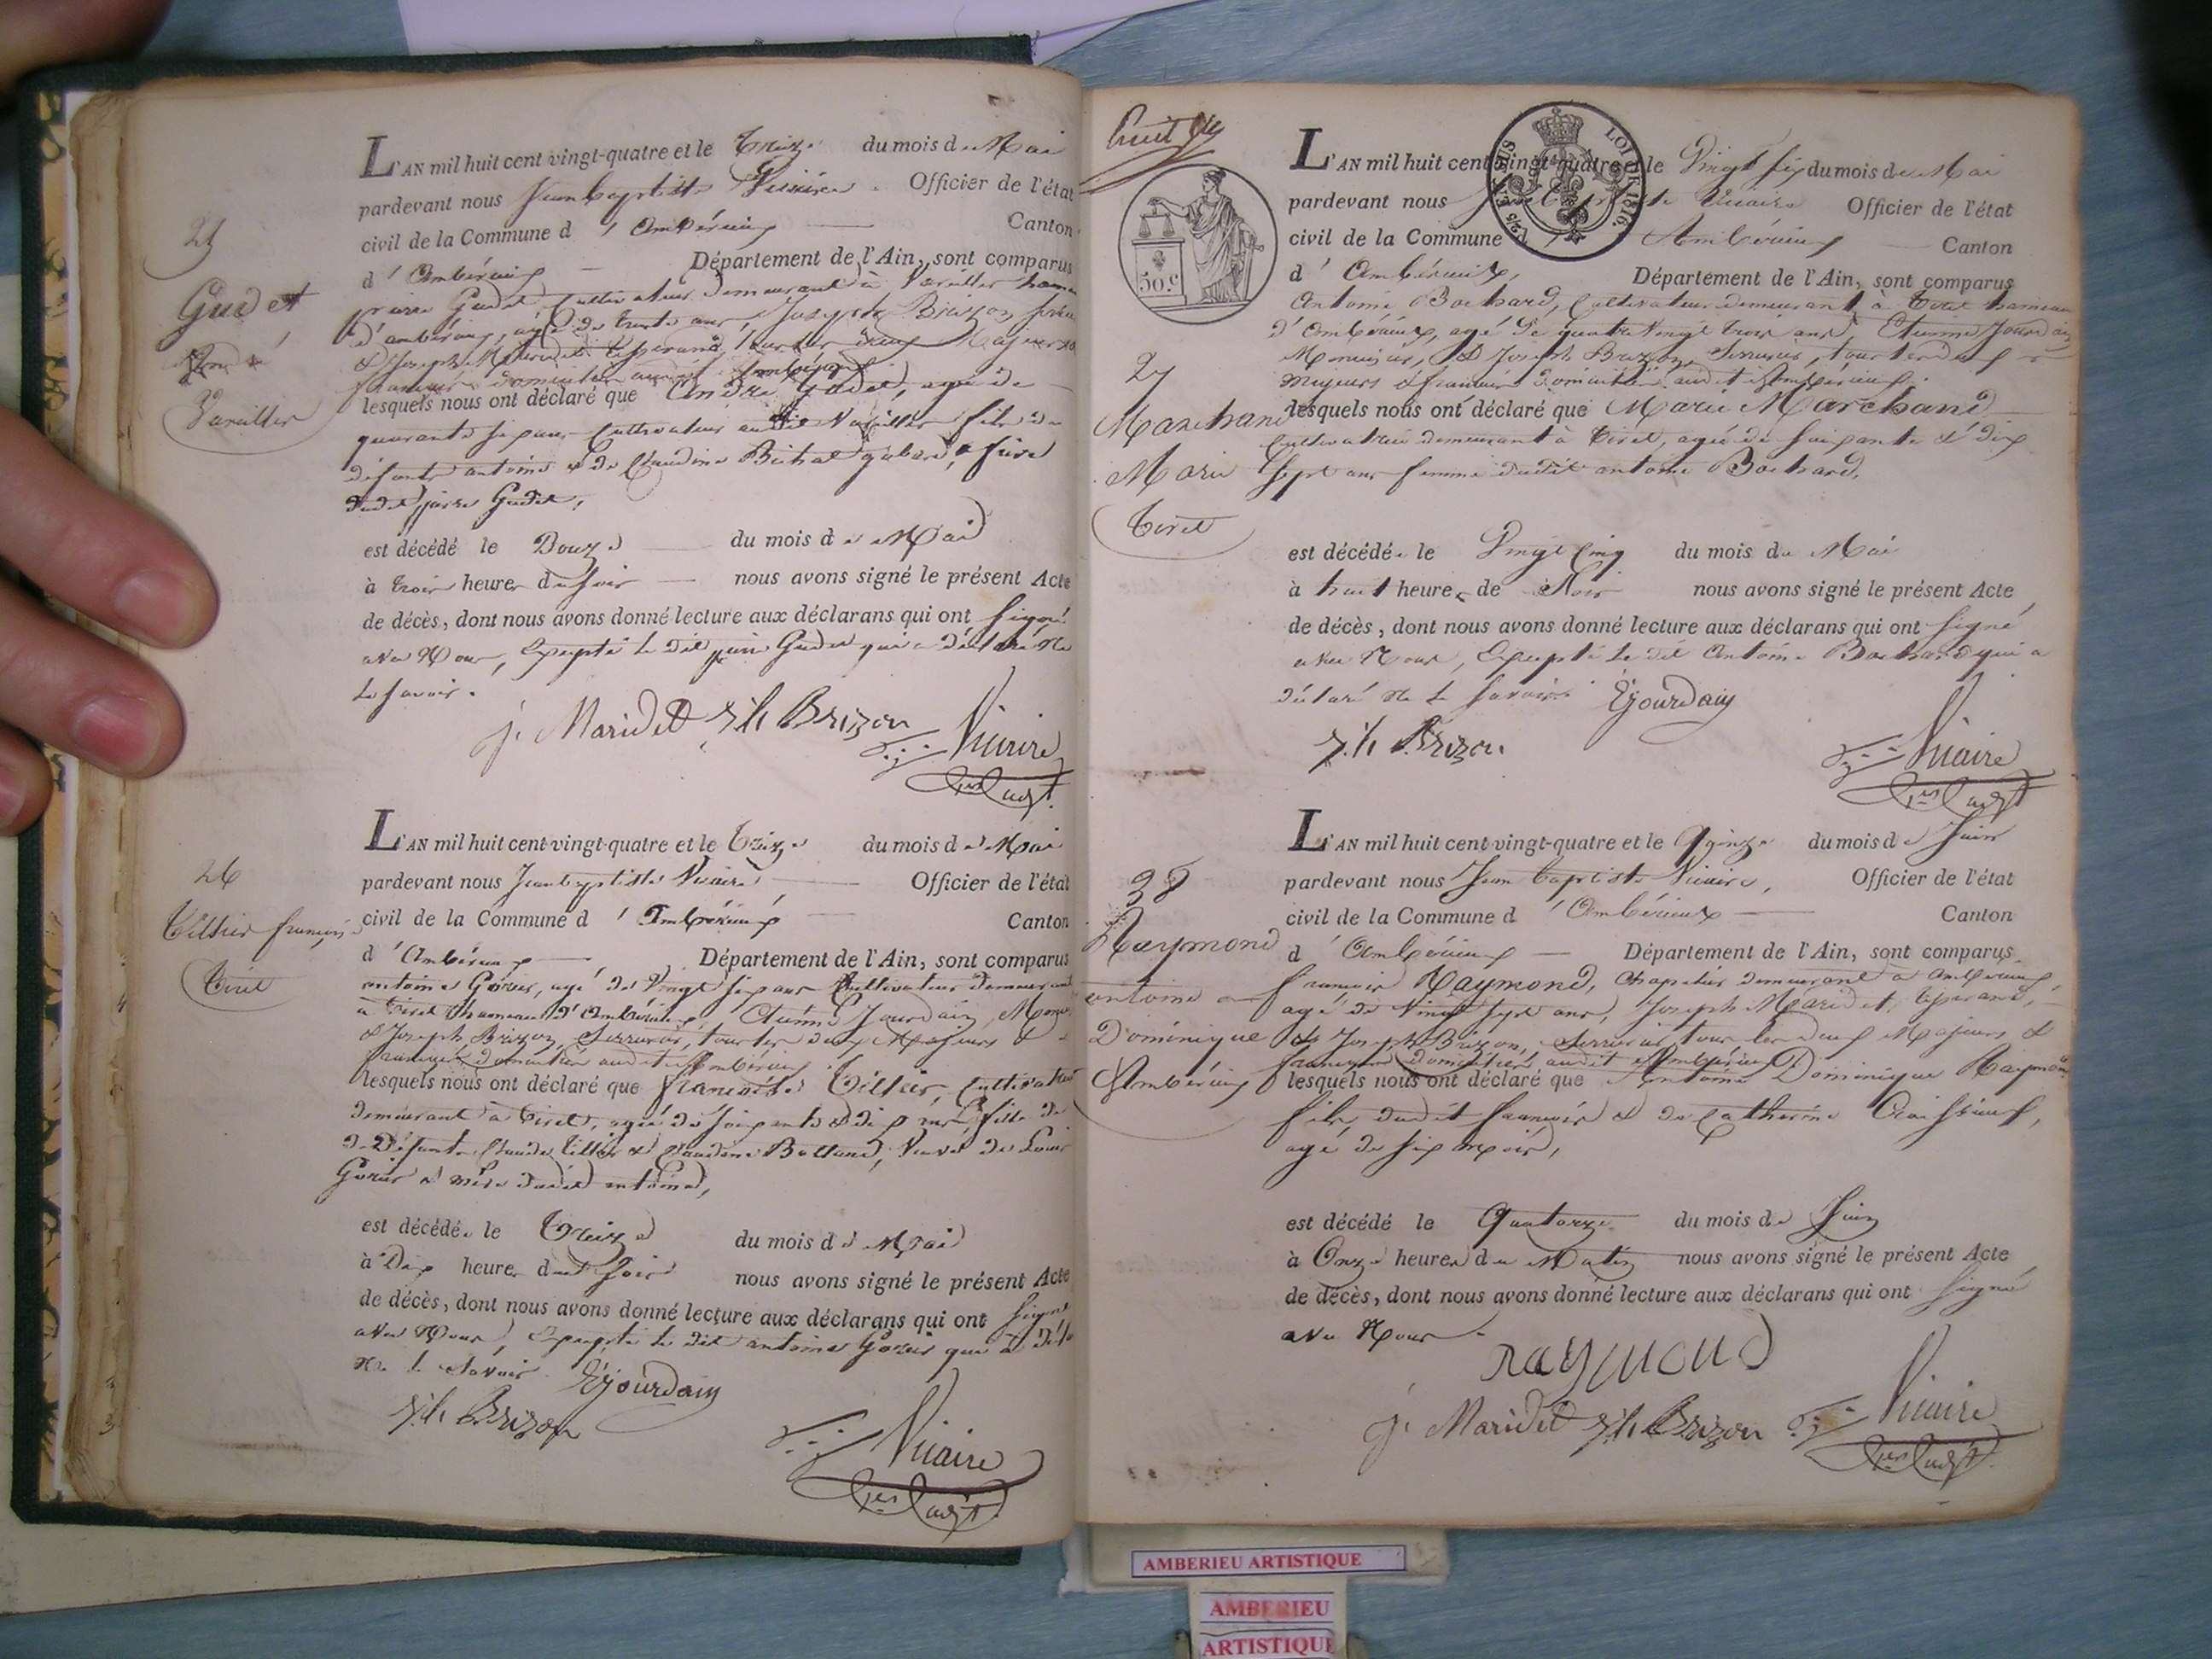 25
Gudet
André
Vareilles
L'AN mil huit cent vingt-quatre et le treize du mois de Mai
pardevant nous Jean baptiste Vicaire Officier de l'état
civil de la Commune d'Ambérieux Canton
d'Ambérieux Département de l'Ain, sont comparus
pierre Gudet, Cultivateur demeurant à Vareilles hameau
d'ambérieux, agé de trente ans, Joseph Brizon,
& Joseph Maridet tisserand, tous les deux Majeurs &
français domiciliés audit Ambérieux
lesquels nous ont déclaré que André Gudet, agé de
quarante six ans Cultivateur audit Vareilles fils de
défunts antoine & de Claudine Bichat, frère
dudit pierre Gudet,
est décédé le Douze du mois de Mai
à trois heures du soir nous avons signé le présent Acte
de décès, dont nous avons donné lecture aux déclarans qui ont signé
avec Nous, Excepté le dit pierre Gudet qui a déclaré Ne
le savoir.
j. Maridet jh Brizon Vicaire
26
Tillier
Tiret
L'AN mil huit cent vingt-quatre et le treize du mois de Mai
pardevant nous Jean baptiste Vicaire Officier de l'état
civil de la Commune d'Ambérieux Canton
d'Ambérieux Département de l'Ain, sont comparus
antoine, agé de Vingt six ans Cultivateur demeurant
à Tiret hameau d'Ambérieux, Etienne Jourdain,
& Joseph Brizon, Serrurier, tous les deux Majeurs &
français domiciliés audit Ambérieux
lesquels nous ont déclaré que françoise Tillier, Cultivatrice
demeurant à Tiret, agée de soixante & dix ans, fille de
Défunts Claude Tillier & Claudine Bolland, Veuve de Louis
& mère dudit antoine,
est décédée le treize du mois de Mai
à Dix heures du soir nous avons signé le présent Acte
de décès, dont nous avons donné lecture aux déclarans qui ont signé
avec Nous, Excepté le dit antoine qui a
Ne le Savoir. Ejourdain
jh Brizon
Vicaire
huit
50.c
LOI DE 1816.
L'AN mil huit cent vingt-quatre et le Vingt six du mois de Mai
pardevant nous Jean Baptiste Vicaire Officier de l'état
civil de la Commune d'Ambérieux Canton
d'Ambérieux, Département de l'Ain, sont comparus
Antoine Bochard, Cultivateur demeurant à Tiret hameau
d'Ambérieux, agé de quatre Vingt trois ans, Etienne Jourdain
Menuisier, & Joseph Brizon, Serrurier, tous les deux
majeurs & français domiciliés audit Ambérieux.
27
Marchand
Marie
Tiret
lesquels nous ont déclaré que Marie Marchand
Cultivatrice demeurant à Tiret, agée de soixante & dix
sept ans femme dudit antoine Bochard.
est décédée le Vingt Cinq du mois de Mai
à huit heures de Soir nous avons signé le présent Acte
de décès, dont nous avons donné lecture aux déclarans qui ont signé
avec Nous, Excepté le dit Antoine Bochard qui a
déclaré Ne le Savoir. Ejourdain
jh Brizon. Vicaire
38
Raymond
antoine
Dominique
Ambérieux
L'AN mil huit cent vingt-quatre et le Quinze du mois de Juin
pardevant nous Jean baptiste Vicaire, Officier de l'état
civil de la Commune d'Ambérieux Canton
d'Ambérieux Département de l'Ain, sont comparus
françois Raymond, Chapelier demeurant à Ambérieux
agé de Vingt sept ans, Joseph Maridet, tisserand,
& Joseph Brizon, Serrurier tous les deux Majeurs &
français domiciliés audit Ambérieux
lesquels nous ont déclaré que Antoine Dominique Raymond
fils dudit françois & de Catherine
agé de six mois,
est décédé le Quatorze du mois de Juin
à Onze heures du Matin nous avons signé le présent Acte
de décès, dont nous avons donné lecture aux déclarans qui ont Signé
avec Nous.
RAYMOND
j. Maridet jh Brizon Vicaire
AMBERIEU ARTISTIQUE
AMBERIEU
ARTISTIQUE